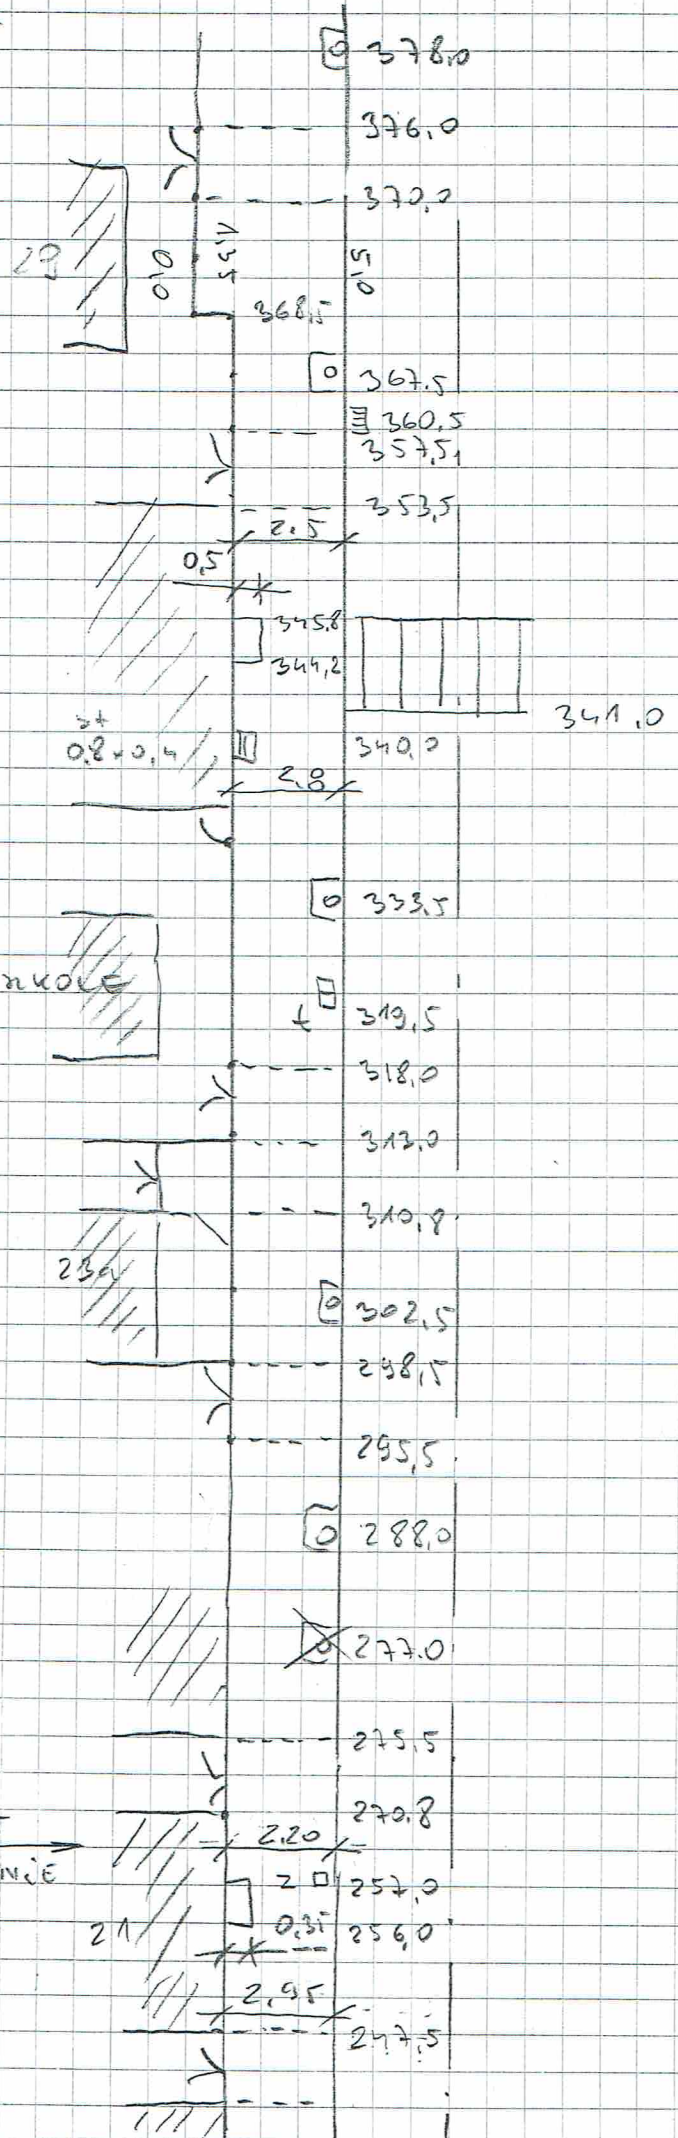 378,0
376,0
370,0
29
0,0
1,35
5,0
368,5
367.5
360,5
357,5
353,5
2.5
0,5
345,8
344,2
341,0
st
0,8 x 0,4
340,0
2,8
333,5
t 319,5
318,0
313,0
310,8
23a
302,5
298,5
295,5
288,0
277.0
275,5
270,8
2,20
NJE
Z 257,0
21
0,35 256,0
2,95
247,5